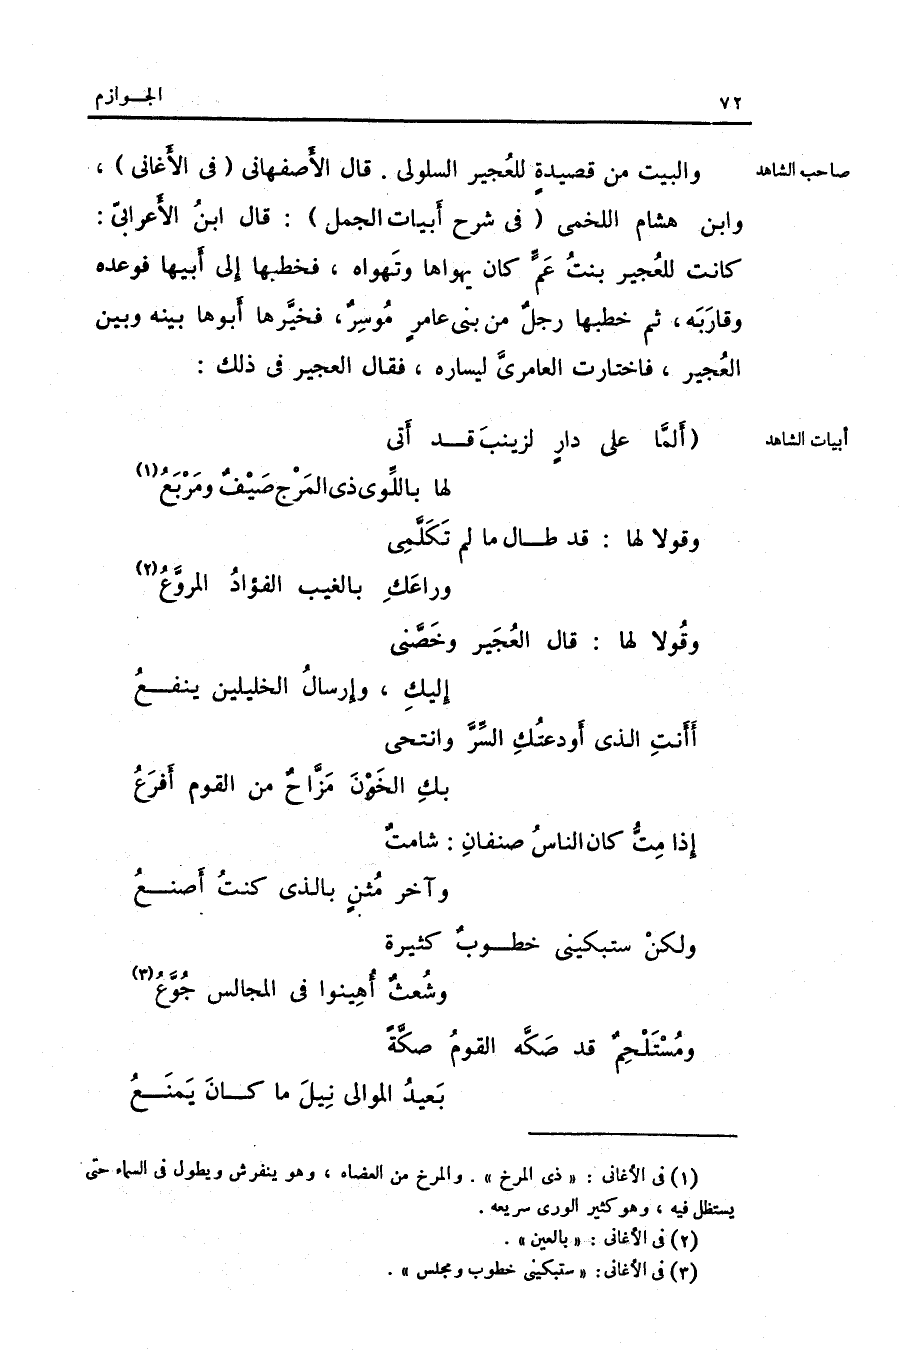 ٧٢
الجــوازم
صاحب الشاهد
والبيت من قصيدةٍ للعُجير السلولى . قال الأَصفهانى ( فى الأَغانى ) ،
وابن هشام اللخمى ( فى شرح أَبيات الجمل ) : قال ابنُ الأَعرابىّ :
كانت للعُجير بنتُ عَمٍّ كان يهواها وتَهواه ، فخطبها إلى أَبيها فوعده
وقارَبَه ، ثم خطبها رجلٌ من بنى عامرٍ مُوسِرٌ ، فخيَّرها أَبوها بينه وبين
العُجير ، فاختارت العامرىَّ ليساره ، فقال العجير فى ذلك :
أبيات الشاهد
( أَلمَّا على دارٍ لزينبَ قــد أَتى
لها باللِّوى ذى المَرْجِ صَيْفٌ ومَرْبَعُ (١)
وقولا لها : قد طــال ما لم تَكَلَّمِى
وراعَكِ بالغيب الفؤادُ المروَّعُ (٢)
وقُولا لها : قال العُجَير وخَصَّنى
إليكِ ، وإرسالُ الخليلين ينفــعُ
أَأَنتِ الذى أَودعتُكِ السِّرَّ وانتحى
بكِ الخَوْنَ مَزَّاحٌ من القوم أَفرَعُ
إذا مِتُّ كان الناسُ صنفانِ : شامتٌ
وآخر مُثنٍ بالذى كنتُ أَصنــعُ
ولكنْ ستبكينى خطــوبٌ كثيرة
وشُعثٌ أُهِينوا فى المجالس جُوَّعُ (٣)
ومُسْتَلْحِمٌ قد صَكَّه القومُ صكَّةً
بَعيدُ الموالى نِيلَ ما كــانَ يَمنَــعُ
(١) فى الأغانى : « ذى المرخ » . والمرخ من العضاه ، وهو ينفرش ويطول فى السماء حتى
يستظل فيه ، وهو كثير الورى سريعه .
(٢) فى الأغانى : « بالعين » .
(٣) فى الأغانى : « ستبكينى خطوب ومجلس » .